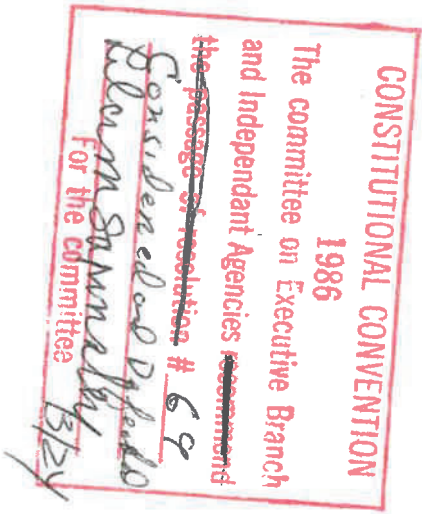 CONSTITUTIONAL CONVENTION
1986
The committee on Executive Branch
and Independant Agencies recommend
the passage of resolution # 69
Considered and
For the committee 3/24